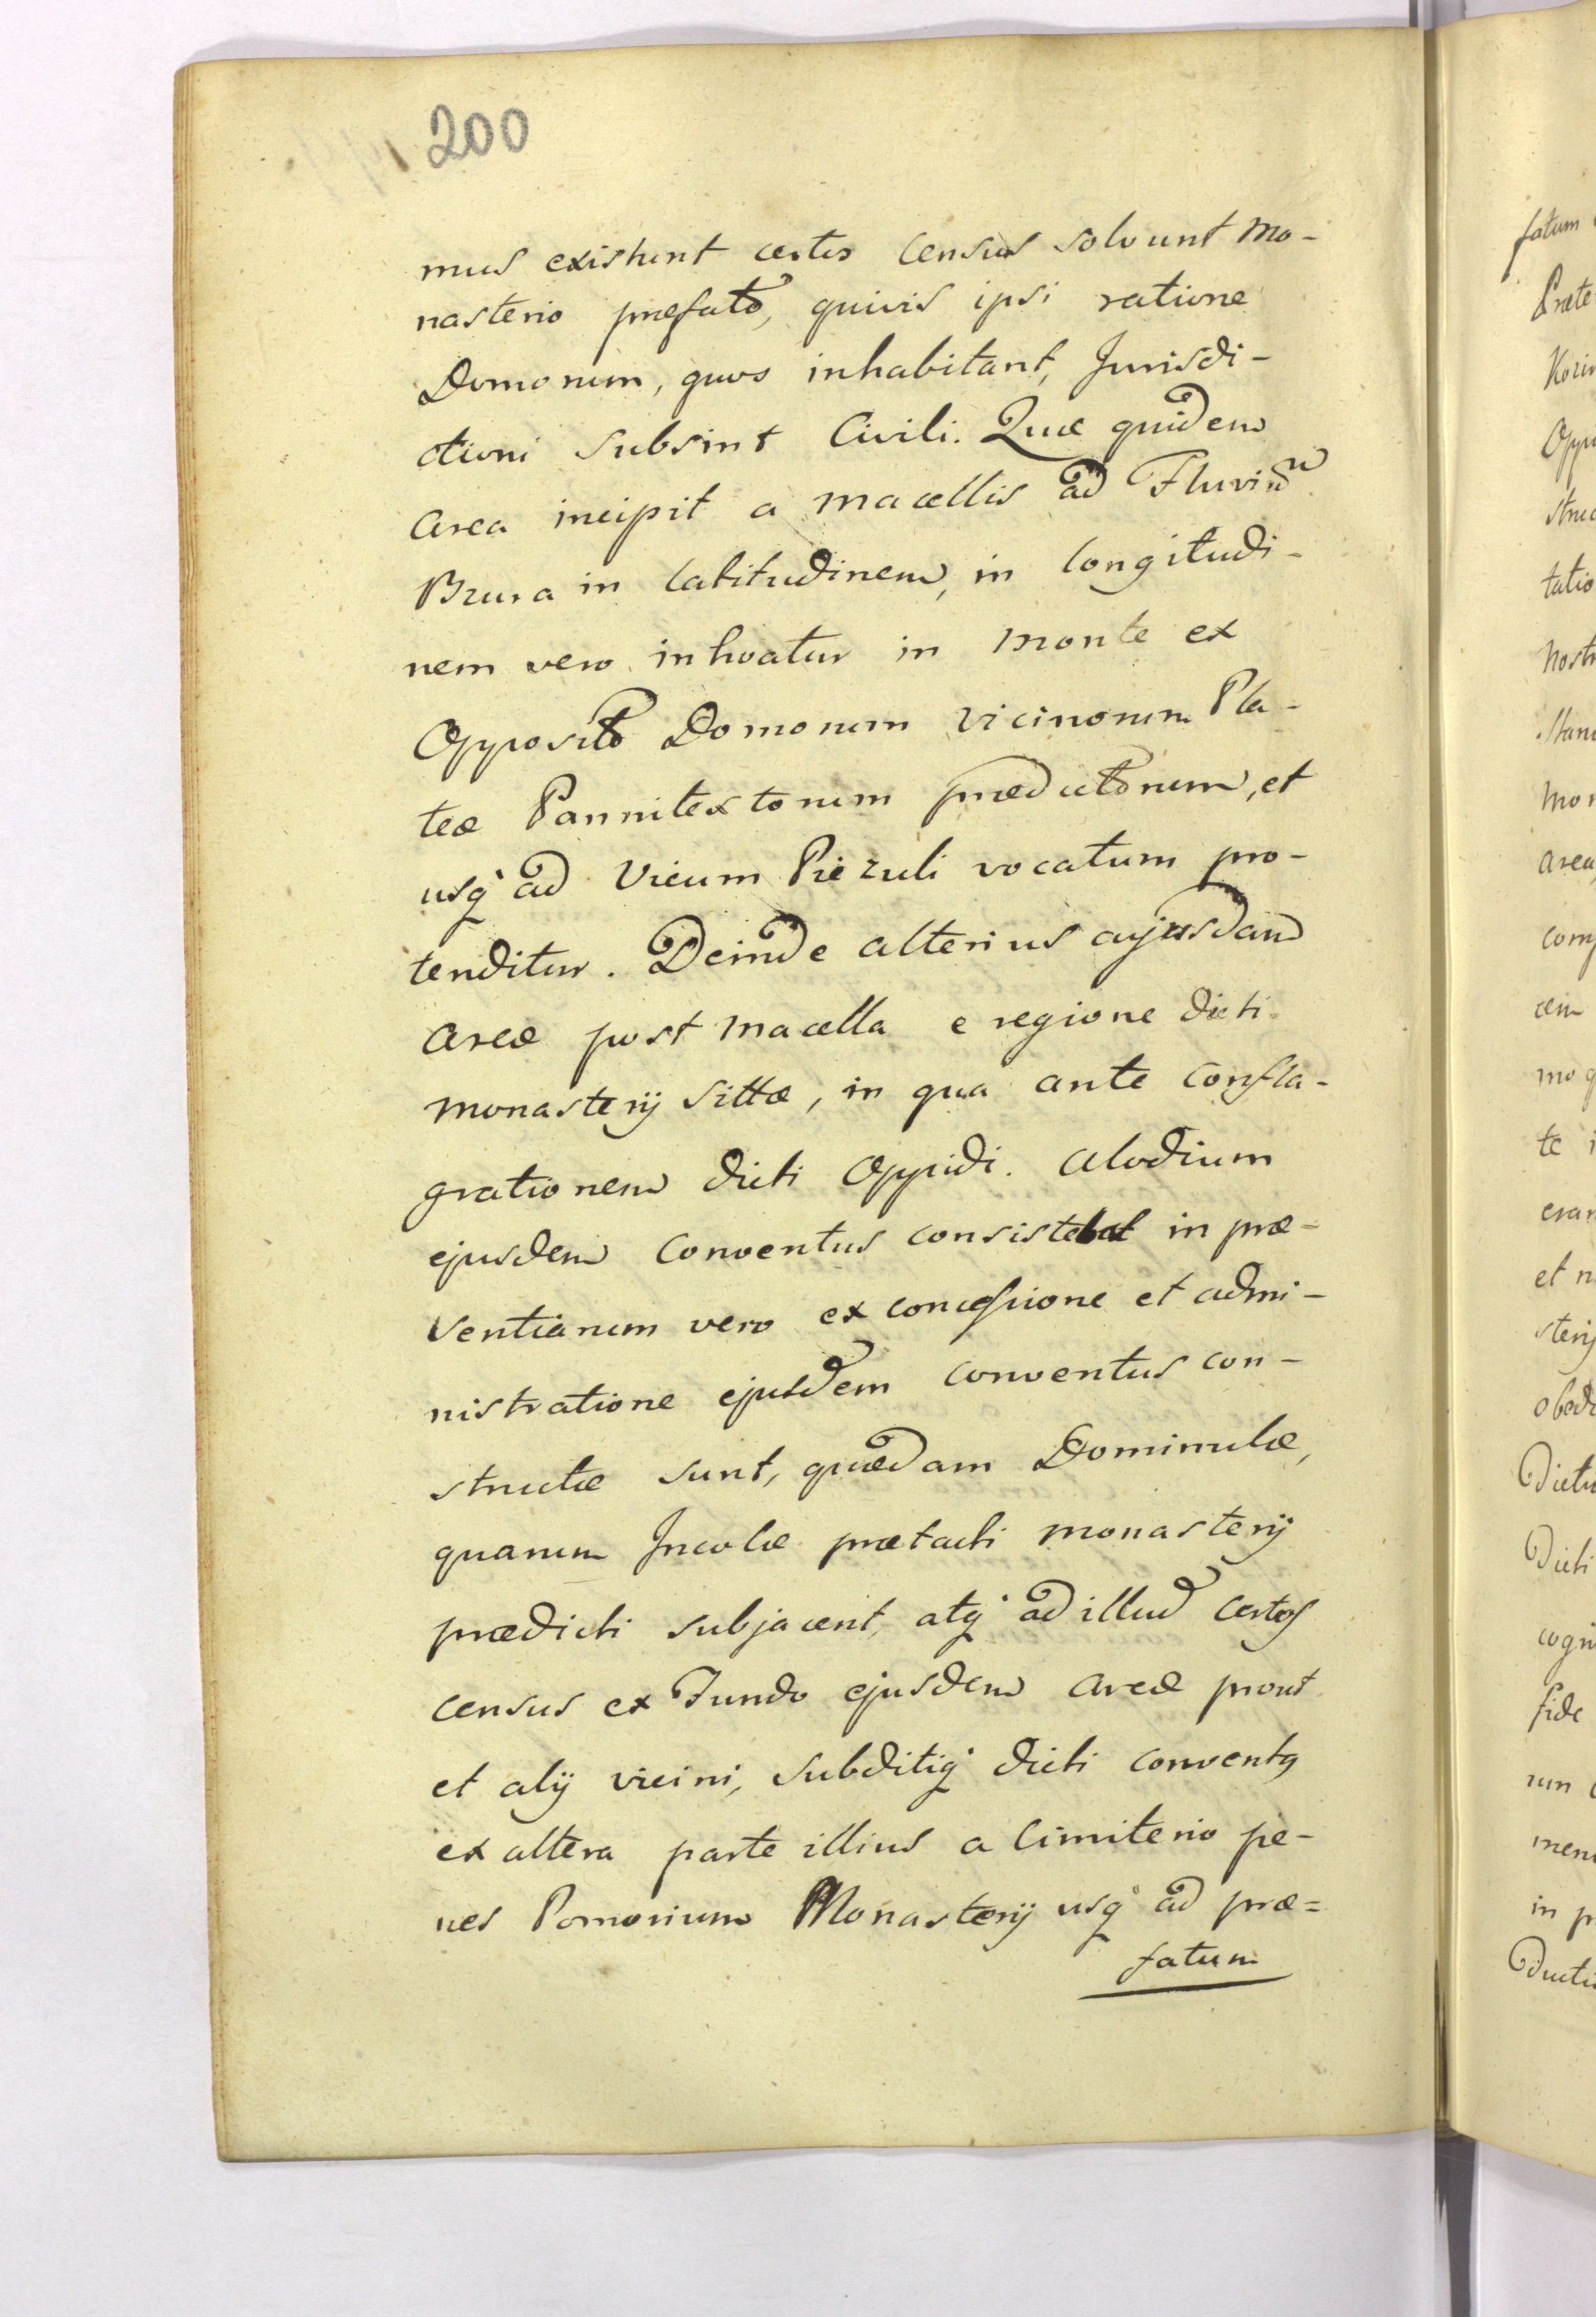 200
mus existunt certos Census solvunt Mo-
nasterio præfato, quivis ipsi ratione
Domorum, quos inhabitant, Jurisdi-
ctioni subsint Civili. Quæ quidem
area incipit a macellis ad Fluvium
Bzura in latitudinem, in longitudi-
nem vero inhoatur in monte ex
Opposito Domorum vicinorum Pla-
teæ Pannitextorum prædictorum, et
usq ad Vicum Piezuli vocatum pro-
tenditur. Deinde alterius cujusdam
areæ post macella e regione dicti
monasterij sittæ, in qua ante confla-
grationem dicti Oppidi. alodium
ejusdem Conventus consistebat in præ-
sentiarum vero ex concessione et admi-
nistratione ejusdem conventus con-
structæ sunt, quædam Dominulæ,
quarum Incolæ prætacti monasterij
prædicti subjacent, atq ad illud certos
census ex Fundo ejusdem areæ prout
et alij vicini, subditiq dicti conventq
ex altera parte illius a Cimiterio pe-
nes Pomorium Monasterij usq ad præ=
fatum
fatum
Præte
Kozin
Oppi
struc
tatio
nostr
stan
mon
area
com
cem
mo q
te i
eran
et n
sterij
obedi
Dictu
Dicti
cogn
fide
rum
men
in p
Ductu